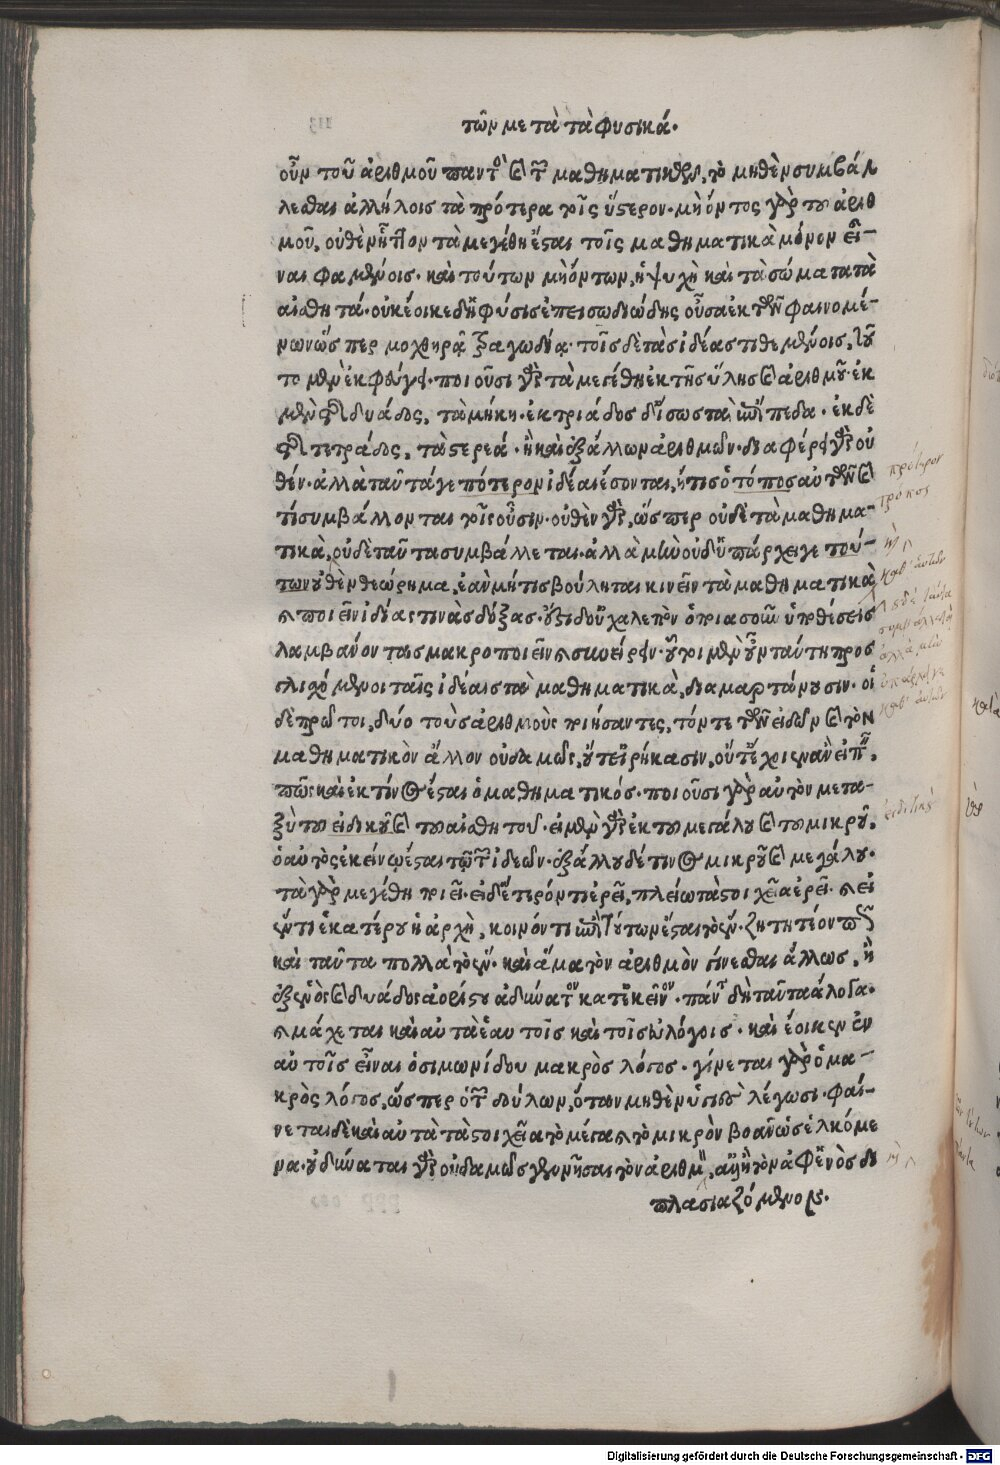 τῶν μετὰ τὰ φυσικά.
οὖν τοῦ ἀριθμοῦ παντὸς καὶ τῶν μαθηματικῶν, τὸ μηθὲν συμβάλ
λεσθαι ἀλλήλοις τὰ πρότερα τοῖς ὕστερον. μὴ ὄντος γὰρ τοῦ ἀριθ
μοῦ, οὐθὲν ἧττον τὰ μεγέθη ἔσται τοῖς μαθηματικὰ μόνον εἶ-
ναι φαμένοις. καὶ τούτων μὴ ὄντων, ἡ ψυχὴ καὶ τὰ σώματα τὰ
αἰσθητά. οὐκ ἔοικε δ' ἡ φύσις ἐπεισωδιώδης οὖσα ἐκ τῶν φαινομέ-
νων ὥσπερ μοχθηρὰ τραγωδία. τοῖς δὲ τὰς ἰδέας τιθεμένοις, τοῦ
το μὲν ἐκφεύγει. ποιοῦσι γὰρ τὰ μεγέθη ἐκ τῆς ὕλης καὶ ἀριθμοῦ. ἐκ
μὲν τῆς δυάδος, τὰ μήκη. ἐκ τριάδος δ' ἴσως τὰ ἐπίπεδα. ἐκ δὲ
τῆς τετράδος, τὰ στερεά. ἢ καὶ ἐξ ἄλλων ἀριθμῶν. διαφέρει γὰρ οὐ
θέν. ἀλλὰ ταῦτά γε πότερον ἰδέαι ἔσονται, ἢ τίς ὁ τόπος αὐτῶν καὶ
τί συμβάλλονται τοῖς οὖσιν. οὐθὲν γὰρ, ὥσπερ οὐδὲ τὰ μαθημα-
τικὰ, οὐδὲ ταῦτα συμβάλλεται. ἀλλὰ μὴν οὐδ' ὑπάρχει γε τού-
των οὐθὲν θεώρημα, ἐὰν μή τις βούληται κινεῖν τὰ μαθηματικὰ
καὶ ποιεῖν ἰδίας τινὰς δόξας. ἔστι δ' οὐ χαλεπὸν ὁποιασοῦν ὑποθέσεις
λαμβάνοντας μακροποιεῖν καὶ συνείρειν. οὗτοι μὲν οὖν ταύτῃ προς
γλιχόμενοι ταῖς ἰδέαις τὰ μαθηματικὰ, διαμαρτάνουσιν. οἱ
δὲ πρῶτοι, δύο τοὺς ἀριθμοὺς ποιήσαντες, τόν τε τῶν εἰδῶν καὶ τὸν
μαθηματικὸν ἄλλον οὐδαμῶς, οὔτ' εἰρήκασιν, οὔτ' ἔχοιεν ἂν εἰπεῖν,
πῶς καὶ ἐκ τίνος ἔσται ὁ μαθηματικός. ποιοῦσι γὰρ αὐτὸν μετα-
ξὺ τοῦ εἰδικοῦ καὶ τοῦ αἰσθητοῦ. εἰ μὲν γὰρ ἐκ τοῦ μεγάλου καὶ τοῦ μικροῦ,
ὁ αὐτὸς ἐκείνῳ ἔσται τῷ τῶν ἰδεῶν. ἐξ ἄλλου δέ τινος μικροῦ καὶ μεγάλου.
τὰ γὰρ μεγέθη ποιεῖ. εἰ δ' ἕτερόν τι ἐρεῖ, πλείω τὰ στοιχεῖα ἐρεῖ. καὶ εἰ
ἕν τι ἑκατέρου ἡ ἀρχὴ, κοινόν τι ἐπὶ τούτων ἔσται τὸ ἕν. ζητητέον πῶς
καὶ ταῦτα πολλὰ τὸ ἕν. καὶ ἅμα τὸν ἀριθμὸν γίνεσθαι ἄλλως, ἢ
ἐξ ἑνὸς καὶ δυάδος ἀορίστου ἀδύνατον κατ' ἐκεῖνον. πάντα δὴ ταῦτα ἄλογα.
καὶ μάχεται καὶ αὐτὰ ἑαυτοῖς καὶ τοῖς εὐλόγοις. καὶ ἔοικεν ἐν
αὐτοῖς εἶναι ὁ σιμωνίδου μακρὸς λόγος. γίνεται γὰρ ὁ μα-
κρὸς λόγος, ὥσπερ ὁ τῶν δούλων, ὅταν μηθὲν ὑγιὲς λέγωσι. φαί-
νεται δὲ καὶ αὐτὰ τὰ στοιχεῖα τὸ μέγα καὶ τὸ μικρὸν βοᾶν ὡς ἑλκόμε
να. οὐ δύναται γὰρ οὐδαμῶς γεννῆσαι τὸν ἀριθμὸν, ἀλλ' ἢ τὸν ἀφ' ἑνὸς δι
πλασιαζόμενον.
πρότερον
τρόπος
καθ' αὑτῶν
οὐδὲ ταῦτα
συμβάλλεται
ἀλλὰ μὴν
ὑπάρχει γε
καθ' αὑτῶν
εἰδητικοῦ
Digitalisierung gefördert durch die Deutsche Forschungsgemeinschaft - DFG